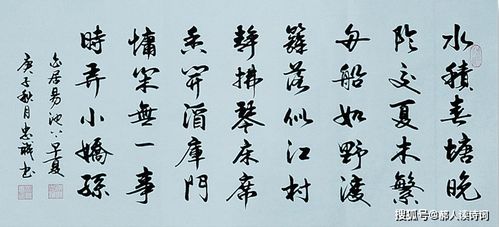 水積春塘晚
陰交夏木繁
舟船如野渡
籬落似江村
靜拂琴床席
香開酒庫門
慵閑無一事
時弄小嬌孫
白居易池上早夏
庚子秋月忠誠书
搜狐号@人溪诗词